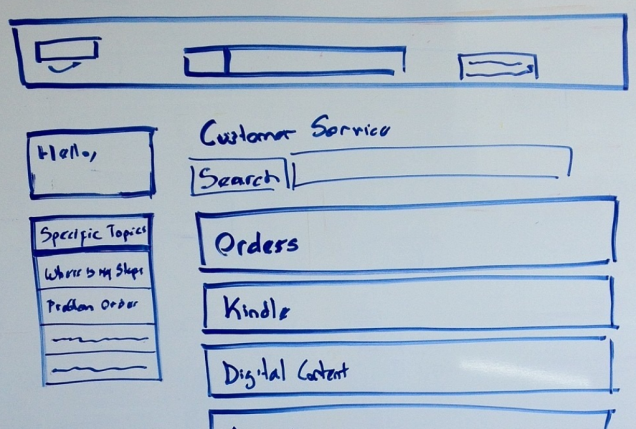 Hello,
Specific Topics
Where is my
Problem Order
Customer Service
Search
Orders
Kindle
Digital Content